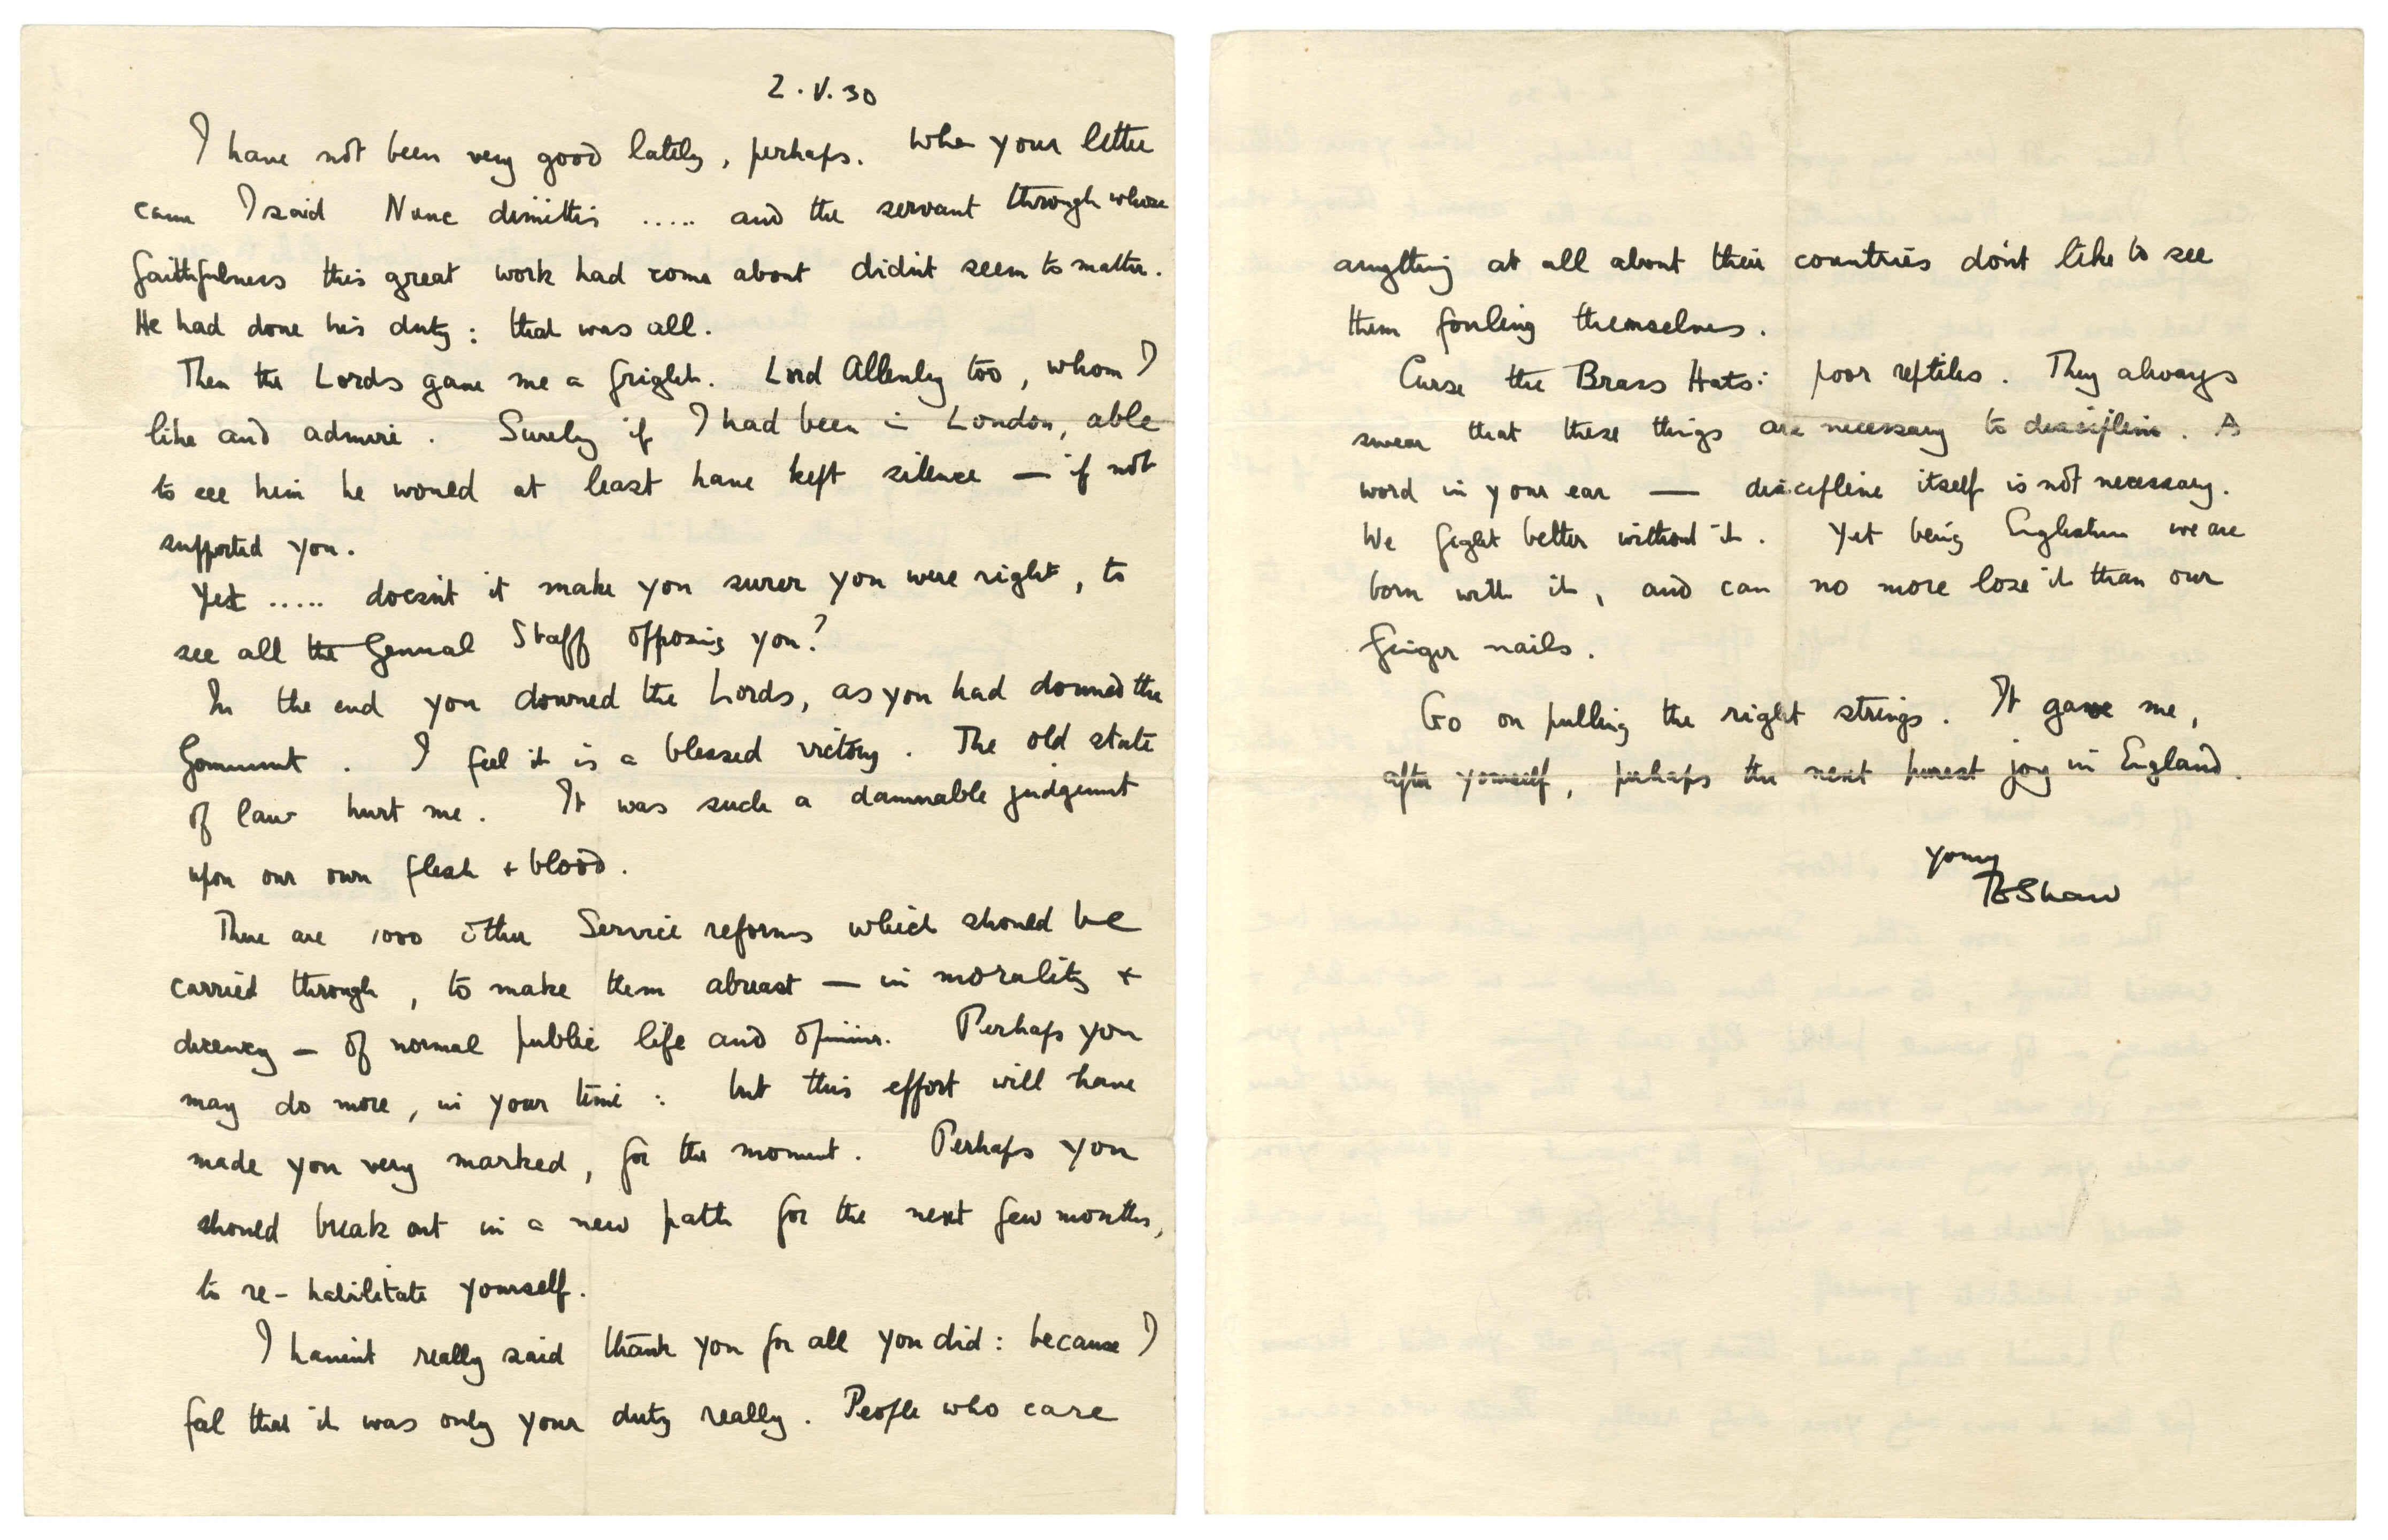 2.V.30
I have not been very good lately, perhaps. When your letter
came I said Nunc dimittis ..... and the servant through whose
faithfulness this great work had come about didn't seem to matter.
He had done his duty: that was all.
Then the Lords gave me a fright. Lord Allenby too, whom I
like and admire. Surely if I had been in London, able
to see him he would at least have kept silence — if not
supported you.
Yet ..... doesn't it make you surer you were right, to
see all the General Staff opposing you?
In the end you downed the Lords, as you had downed the
Government. I feel it is a blessed victory. The old state
of law hurt me. It was such a damnable judgement
upon our own flesh + blood.
There are 1000 other Service reforms which should be
carried through, to make them abreast — in morality +
decency — of normal public life and opinion. Perhaps you
may do more, in your time: but this effort will have
made you very marked, for the moment. Perhaps you
should break out in a new path for the next few months,
to re-habilitate yourself.
I haven't really said thank you for all you did: because I
feel that it was only your duty really. People who care
anything at all about their countries don't like to see
them fouling themselves.
Curse the Brass Hats: poor reptiles. They always
swear that these things are necessary to discipline. A
word in your ear — discipline itself is not necessary.
We fight better without it. Yet being Englishmen we are
born with it, and can no more lose it than our
finger nails.
Go on pulling the right strings. It gave me,
after yourself, perhaps the next purest joy in England.
Yours
TEShaw